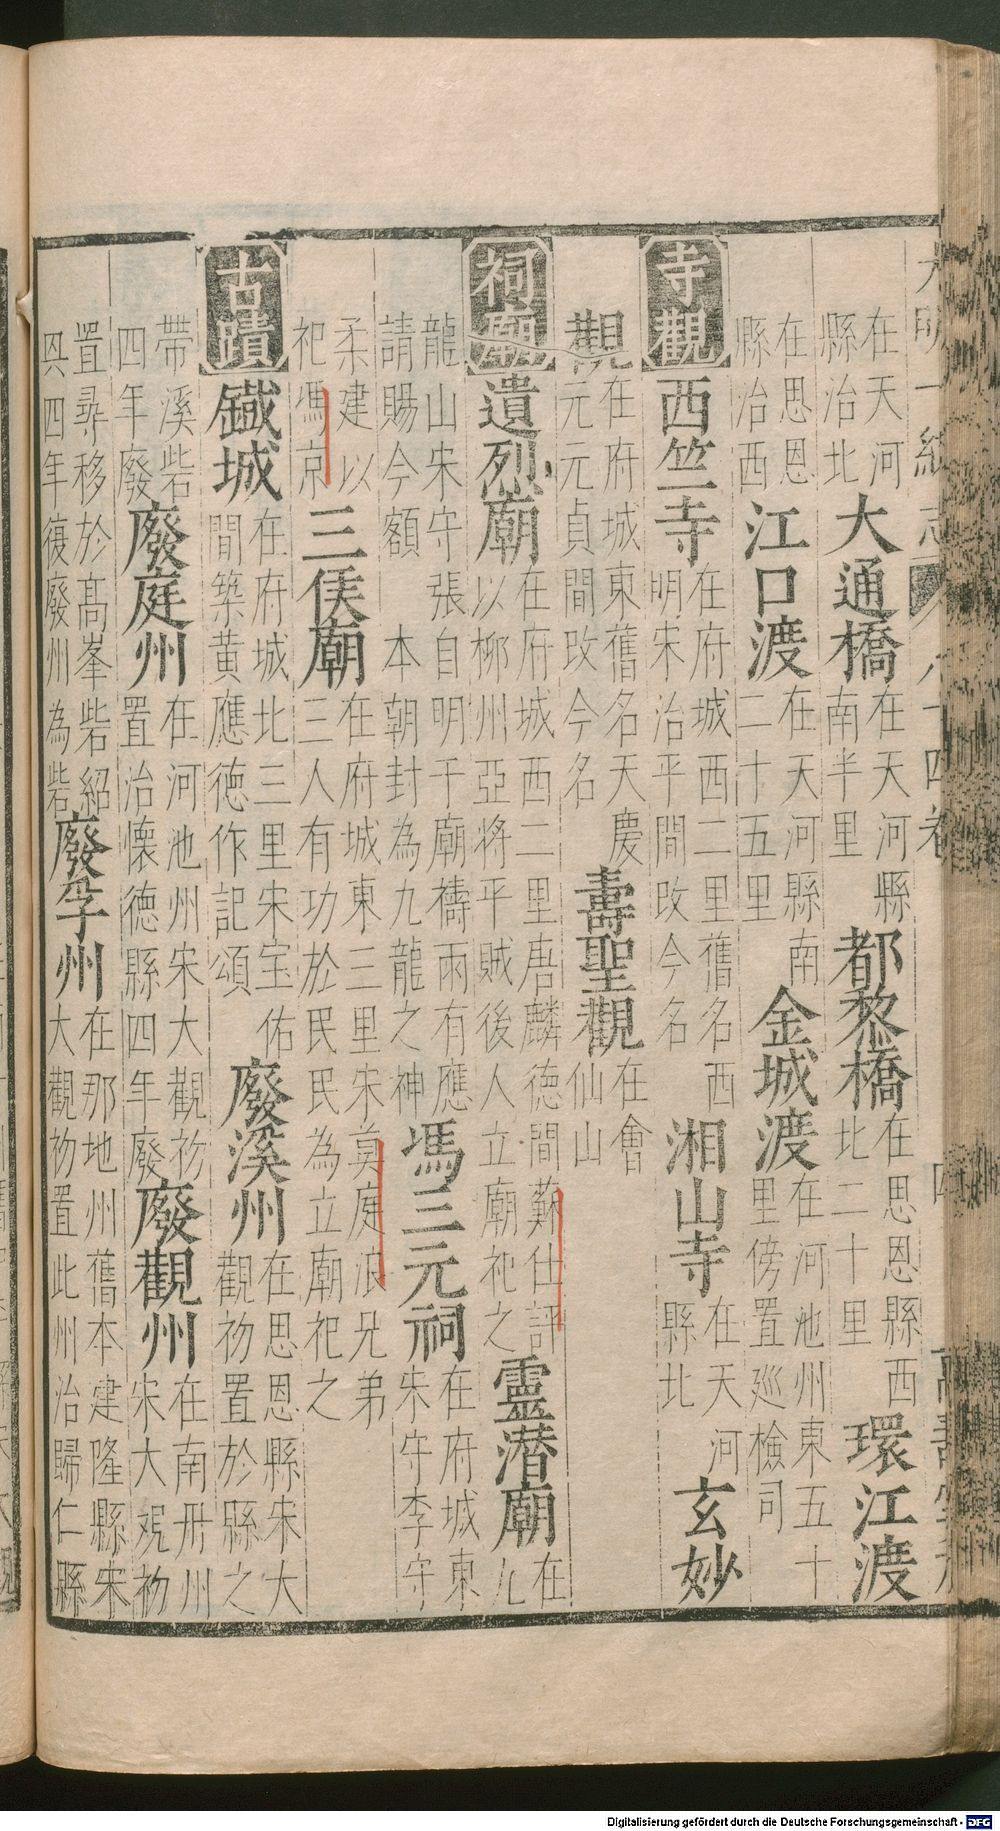 大明一統志 八十四卷 四
在天河縣治北大通橋在天河縣南半里都黎橋在思恩縣西北二十里環江渡
在思恩縣治西江口渡在天河縣南二十五里金城渡在河池州東五十里傍置巡檢司
寺觀西竺寺在府城西二里舊名西明宋治平間改今名湘山寺在天河縣北玄妙
觀在府城東舊名天慶元元貞間改今名壽聖觀在會仙山
祠廟遺烈廟在府城西二里唐麟德間蘇仕評以柳州亞將平賊後人立廟祀之靈潜廟在九
龍山宋守張自明于廟禱雨有應請賜今額 本朝封為九龍之神馮三元祠在府城東宋守李守
柔建以祀馮京三侯廟在府城東三里宋莫庭浪兄弟三人有功於民民為立廟祀之
古蹟鐵城在府城北三里宋宝佑間築黄應德作記頌廢溪州在思恩縣宋大觀初置於縣之
帶溪砦四年廢廢庭州在河池州宋大觀初置治懷德縣四年廢廢觀州在南丹州宋大观初
置尋移於髙峯砦紹興四年復廢州為砦廢孚州在那地州舊本建隆縣宋大觀初置此州治歸仁縣
Digitalisierung gefördert durch die Deutsche Forschungsgemeinschaft - DFG